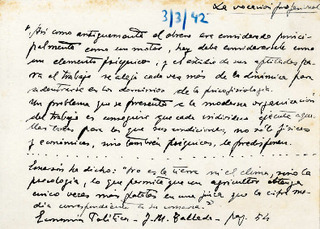 La vocación profesional
3/3/42
"Así como antiguamente el obrero era considerado princi-
palmente como un motor, hoy debe considerársele como
un elemento psíquico, y el estudio de sus aptitudes pa-
ra el trabajo se aleja cada vez más de la dinámica para
adentrarse en los dominios de la psicofisiología.
Un problema que se presenta a la moderna organización
del trabajo es conseguir que cada individuo ejecute aque-
llas tareas para las que sus condiciones, no sólo físicas
y económicas, sino también psíquicas, le predisponen.
Emerson ha dicho: "no es la tierra ni el clima, sino la
psicología, lo que permite que un agricultor obtenga
cinco veces más patatas en una finca que la cifra me-
dia correspondiente a su comarca."
Economía Política - J. M. Tallada - pag. 54